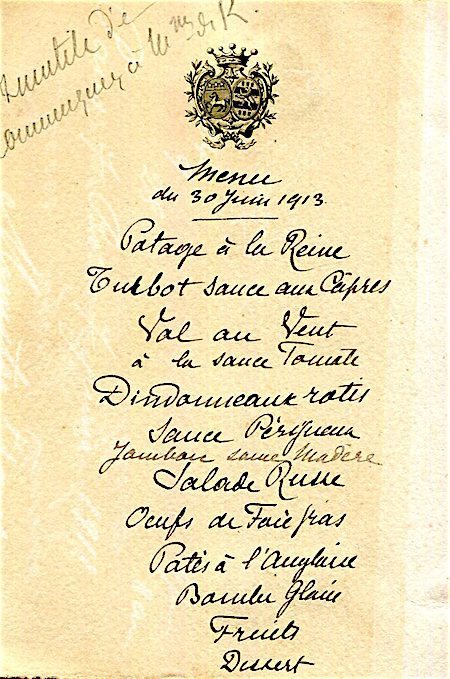 Inutile de
communiquer à Mme de R.
Menu
du 30 Juin 1913.
Potage à la Reine
Turbot sauce aux Câpres
Val au Vent
à la sauce Tomate
Dindonneaux rotis
Sauce Périgueux
Jambon sauce Madère
Salade Russe
Oeufs de Foie gras
Patés à l'Anglaise
Bombe Glacée
Fruits
Dessert